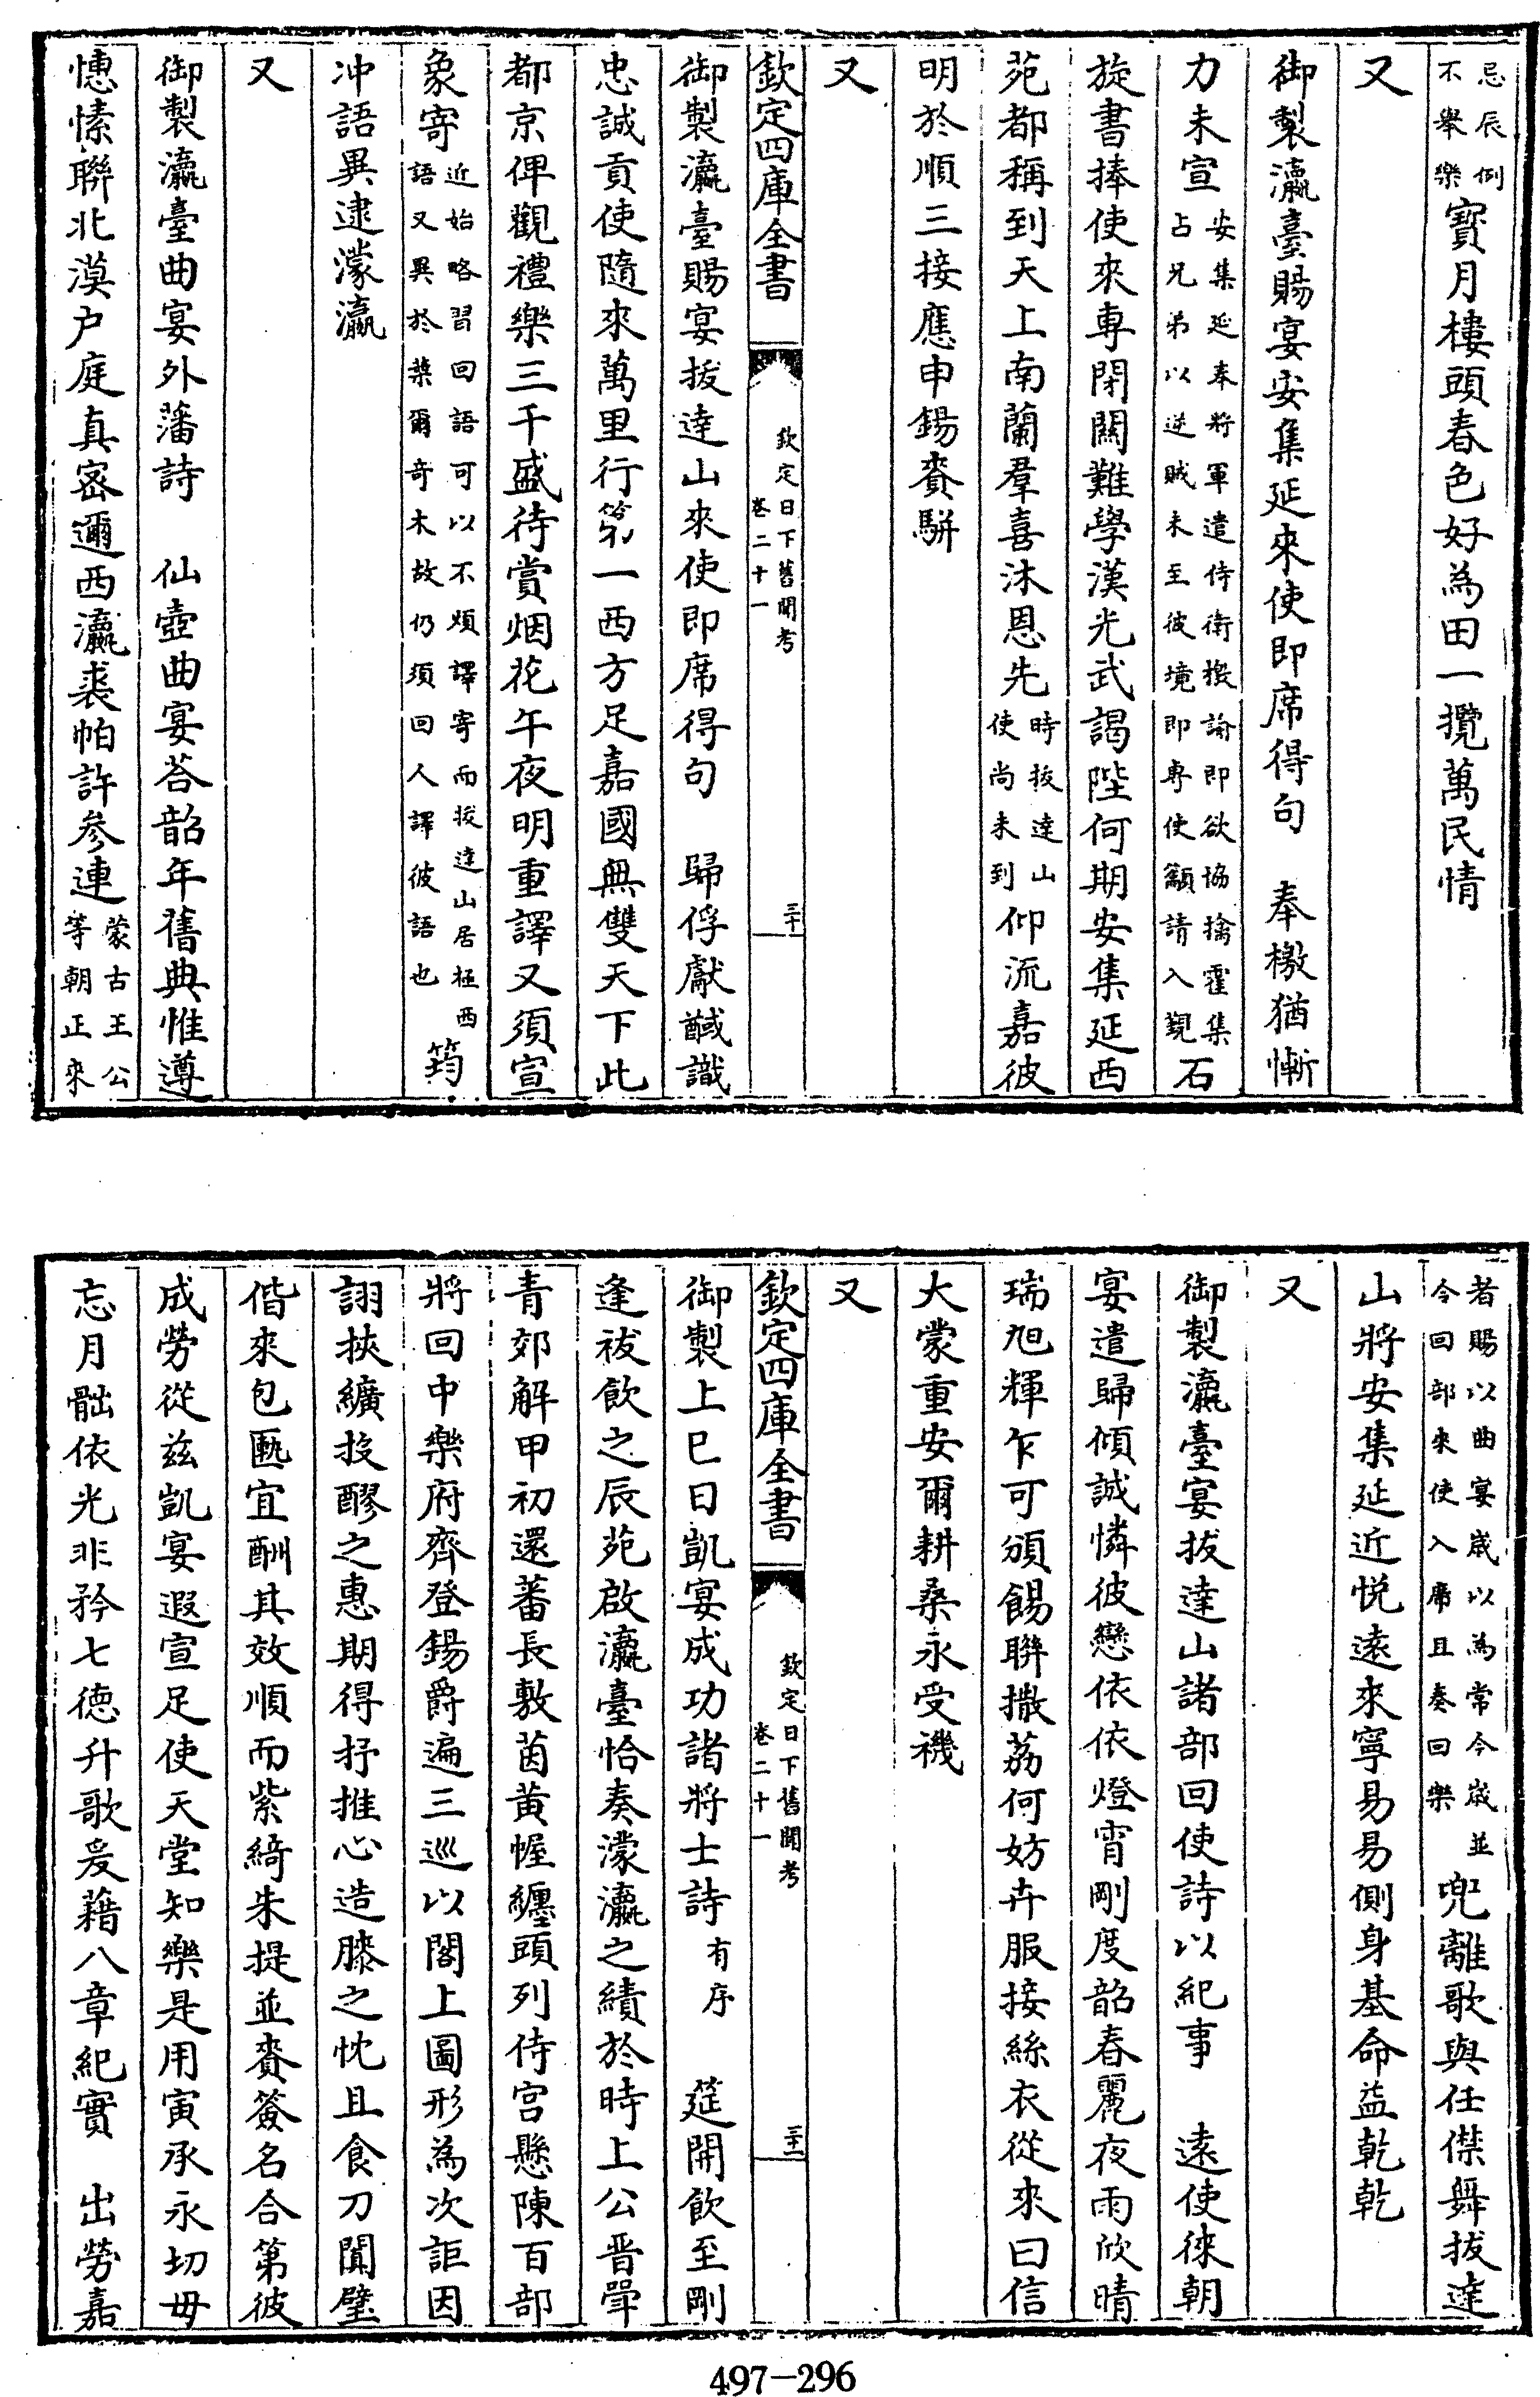 忌辰例不舉樂寳月樓頭春色好為田一攬萬民情
又
御製瀛臺賜宴安集延來使即席得句　奉檄猶慚
力未宣安集延奉將軍遣侍衛檄諭即欲協擒霍集占兄弟以逆賊未至彼境即專使籲請入覲石
旋書捧使來專閉關難學漢光武謁陛何期安集延西
苑都稱到天上南蘭羣喜沐恩先時拔達山使尚未到仰流嘉彼
明於順三接應申錫賚駢
又
欽定四庫全書　欽定日下舊聞考卷二十一　三十
御製瀛臺賜宴拔達山來使即席得句　歸俘獻馘識
忠誠貢使隨來萬里行第一西方足嘉國無雙天下此
都京俾觀禮樂三千盛待賞烟花午夜明重譯又須宣
象寄近始略習回語可以不煩譯寄而拔達山居極西語又異於葉爾奇木故仍須回人譯彼語也筠
冲語異逮濛瀛
又
御製瀛臺曲宴外藩詩　仙壺曲宴荅韶年舊典惟遵
憓愫聯北漠户庭真密邇西瀛裘帕許參連蒙古王公等朝正來
者賜以曲宴歲以為常今歲並令回部來使入席且奏回樂兜離歌與任僸舞拔達
山將安集延近悦遠來寧易易側身基命益乾乾
又
御製瀛臺宴拔達山諸部回使詩以紀事　遠使徠朝
宴遣歸傾誠憐彼戀依依燈宵剛度韶春麗夜雨欣晴
瑞旭輝乍可頒餳聨撒荔何妨卉服接絲衣從來曰信
大蒙重安爾耕桑永受禨
又
欽定四庫全書　欽定日下舊聞考卷二十一　三十一
御製上巳日凱宴成功諸將士詩有序　筵開飲至剛
逢祓飲之辰苑啟瀛臺恰奏濛瀛之績於時上公晋斝
青郊解甲初還蕃長敷茵黄幄纒頭列侍宫懸陳百部
將回中樂府齊登錫爵遍三巡以閣上圖形為次詎因
詡挾纊投醪之惠期得抒推心造膝之忱且食刀聞璧
偕來包匭宜酬其效順而紫綺朱提並賚簽名合第彼
成勞從兹凱宴遐宣足使天堂知樂是用寅承永切毋
忘月䏣依光非矜七德升歌爰藉八章紀實　出勞嘉
497—296